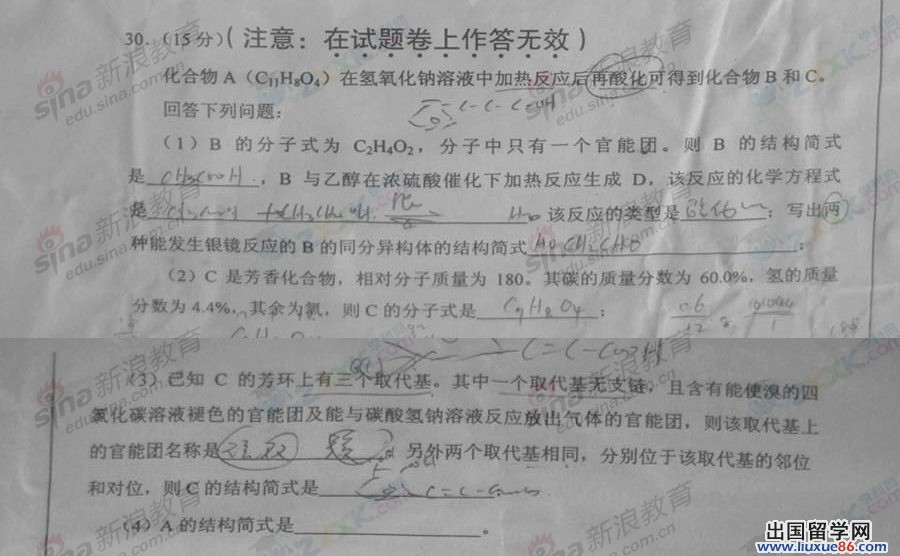 30.（15分）（注意：在试题卷上作答无效）
化合物 A（C₁₁H₈O₄）在氢氧化钠溶液中加热反应后再酸化可得到化合物 B 和 C。
回答下列问题：
（1）B 的分子式为 C₂H₄O₂，分子中只有一个官能团。则 B 的结构简式
是 CH₃COOH，B 与乙醇在浓硫酸催化下加热反应生成 D，该反应的化学方程式
是 该反应的类型是 ；写出两
种能发生银镜反应的 B 的同分异构体的结构简式 HOCH₂CHO ；
（2）C 是芳香化合物，相对分子质量为 180。其碳的质量分数为 60.0%，氢的质量
分数为 4.4%，其余为氧，则 C 的分子式是 C₉H₈O₄ ；
（3）已知 C 的芳环上有三个取代基。其中一个取代基无支链，且含有能使溴的四
氯化碳溶液褪色的官能团及能与碳酸氢钠溶液反应放出气体的官能团，则该取代基上
的官能团名称是 另外两个取代基相同，分别位于该取代基的邻位
和对位，则 C 的结构简式是
（4）A 的结构简式是 。
sina 新浪教育
edu.sina.com.cn
出国留学网
www.liuxue86.com